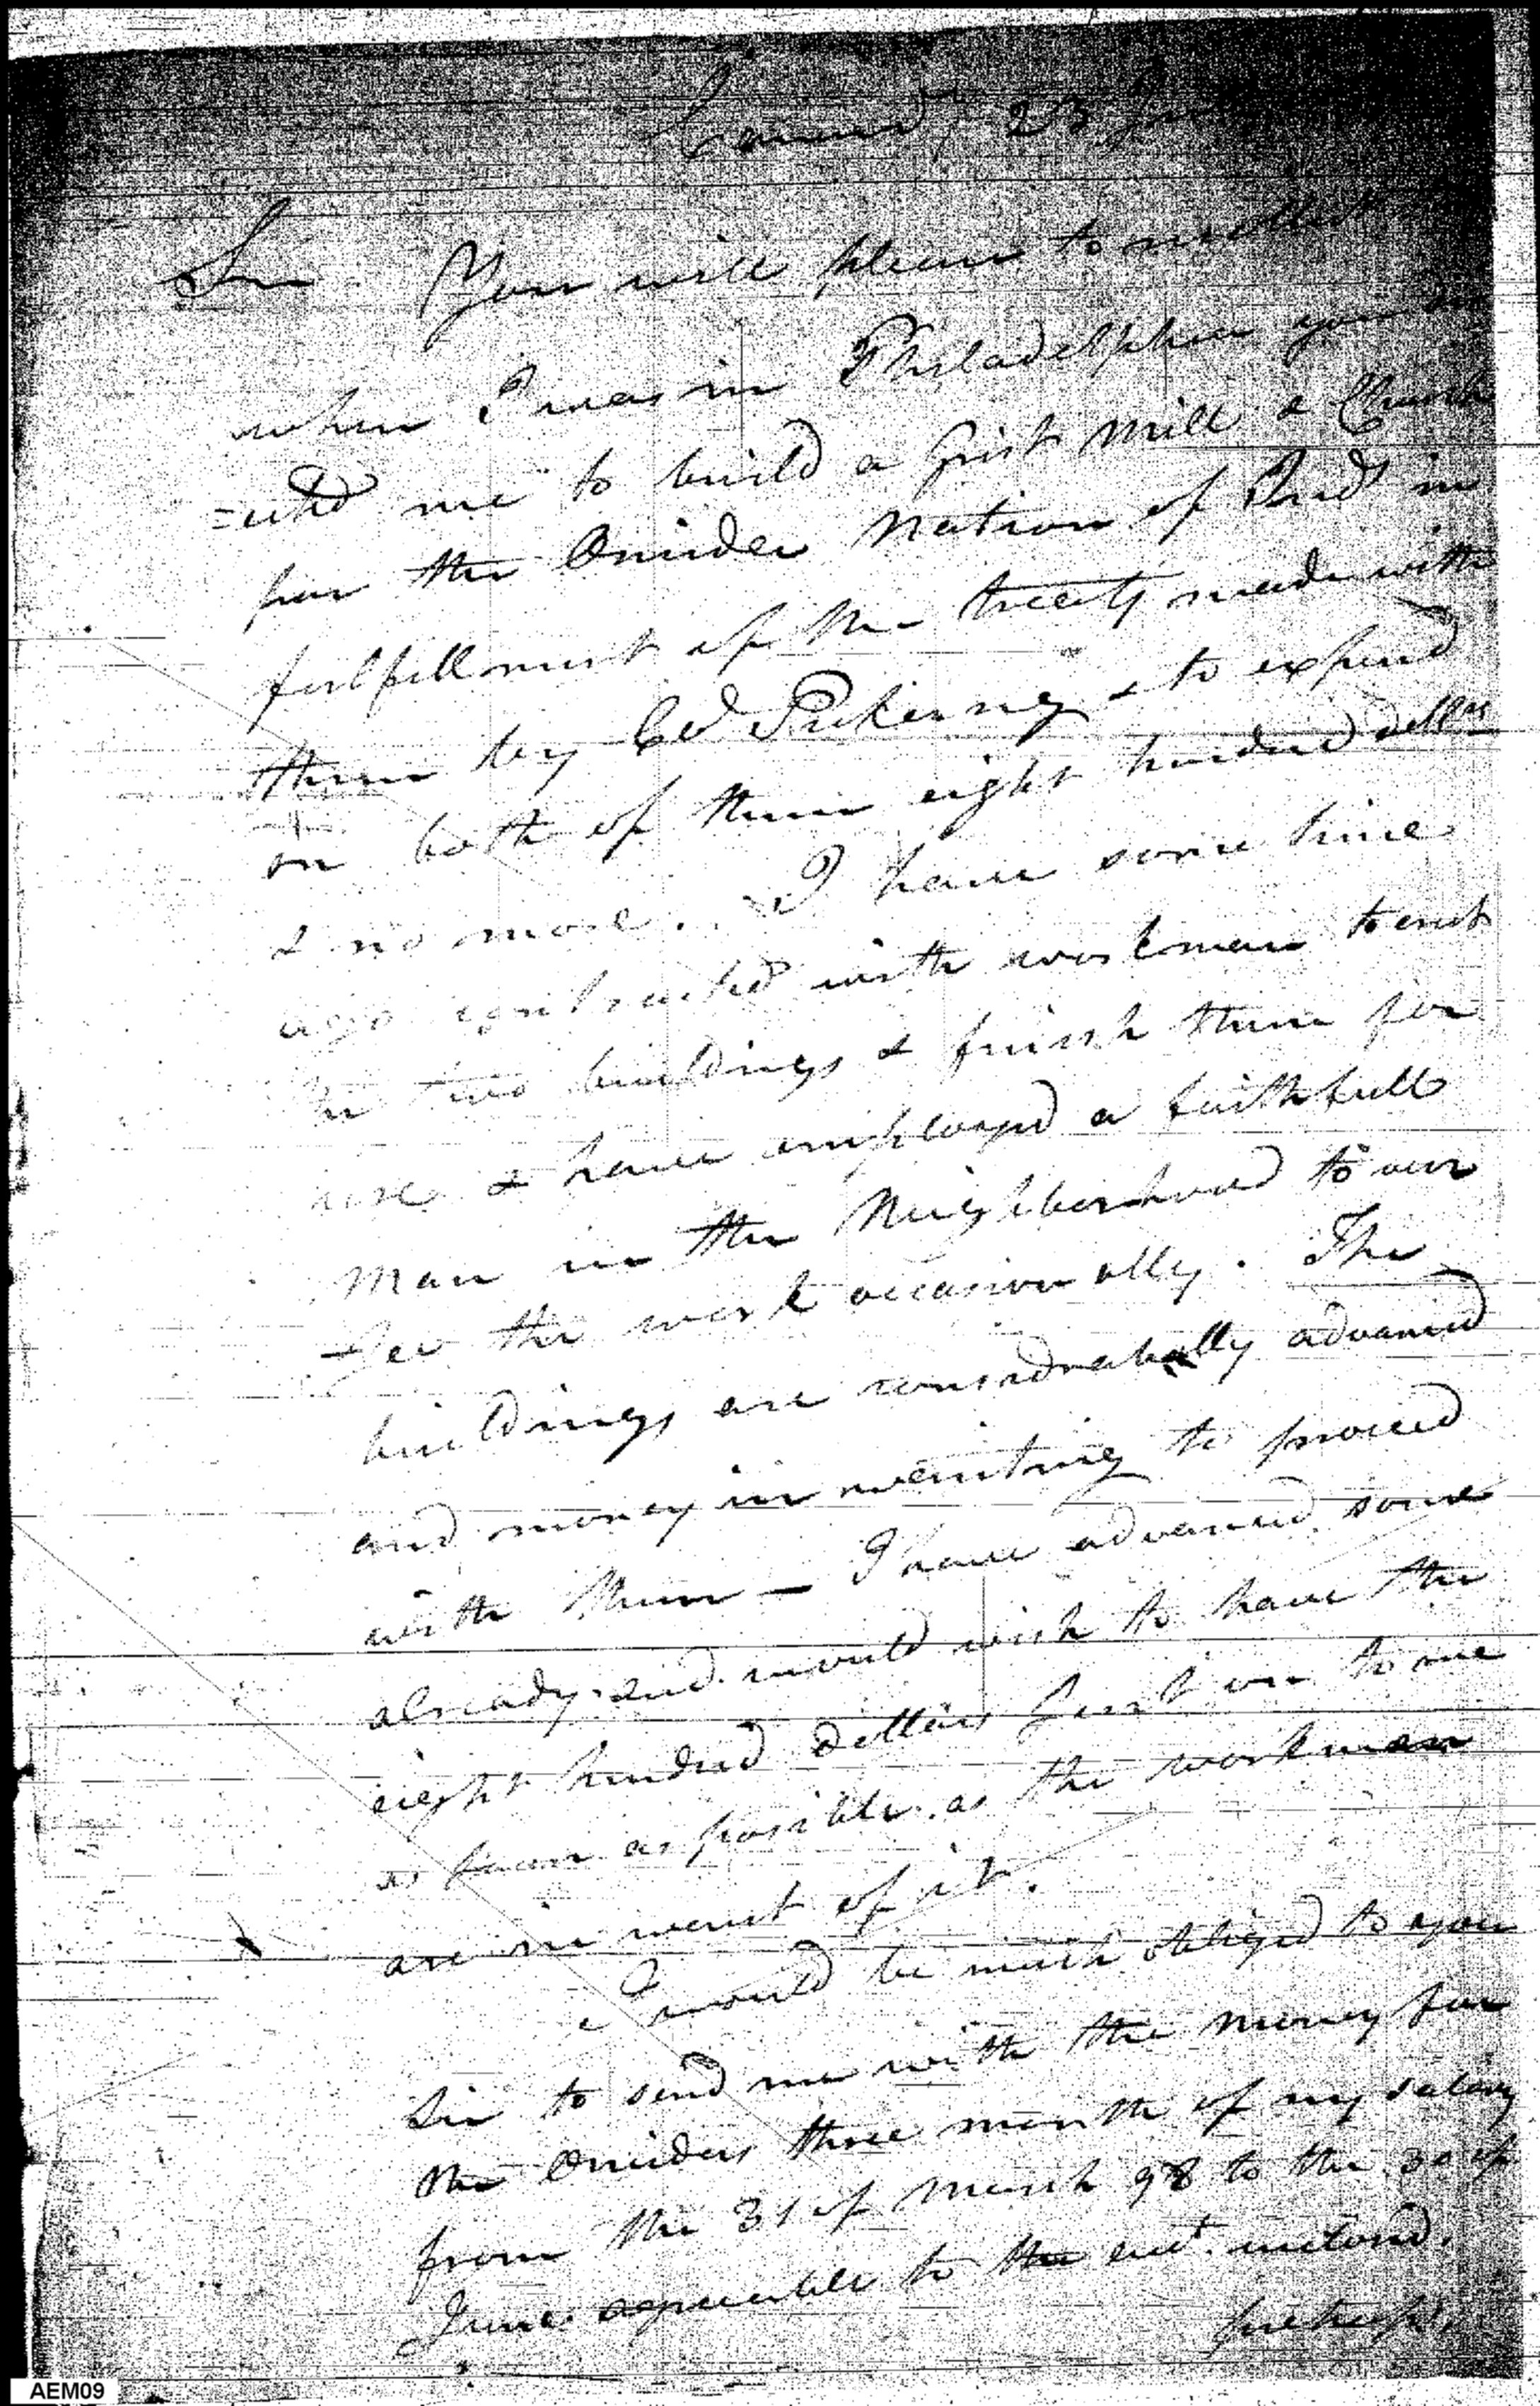 23
Sir You will please to recollect
when I was in Philadelphia you
=cted me to build a Grist Mill & Church
for the Oneida Nation of Inds in
fulfillment of the treaty made with
them by Col Pickering & to expend
on both of them eight hundred dollrs
& no more. I have some time
ago contracted with workmen to erect
the two buildings & finish them for
use & have employed a faithfull
Man in the Neighborhood to over
-See the work occasionally. The
buildings are considrabally advanced
and money in wanting to proceed
with them — I have advanced some
already and would wish to have the
eight hundred Dollars sent on to me
as soon as possible as the workmen
are in want of it.
I would be much obliged to you
Sir to send me with the money for
the Oneidas three month of my salary
from the 31 of March 98 to the 30 of
June agreeable to the act. inclosd.
perhaps
AEM09